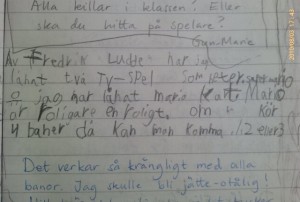 Alla killar i klassen? Eller
ska du hitta på spelare?
Gun-Marie
Av Fredrik Ludde har jag
lånat två TV-SPEL som
o jag har lånat mario kart. Mario
är roligare en roligt. om kör
4 baner då kan man komma 1,2 eller 3
Det verkar så krångligt med alla
banor. Jag skulle bli jätte-otålig!